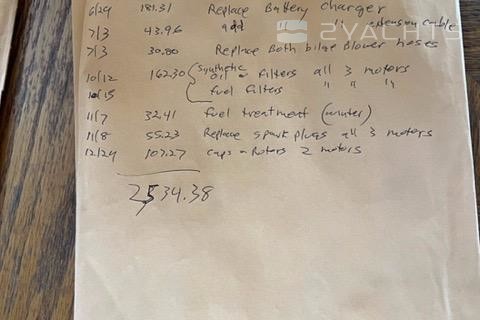 6/29 181.31 Replace Battery charger
2YACHTS
7/3 43.96 add " " extension cable
7/3 30.80 Replace Both bilge Blower hoses
10/12 162.30 { synthetic oil & Filters all 3 motors
10/15 fuel Filters " " "
11/7 32.41 fuel treatment (winter)
11/8 55.23 Replace spark plugs all 3 motors
12/24 107.27 caps & Rotors 2 motors
2,534.38